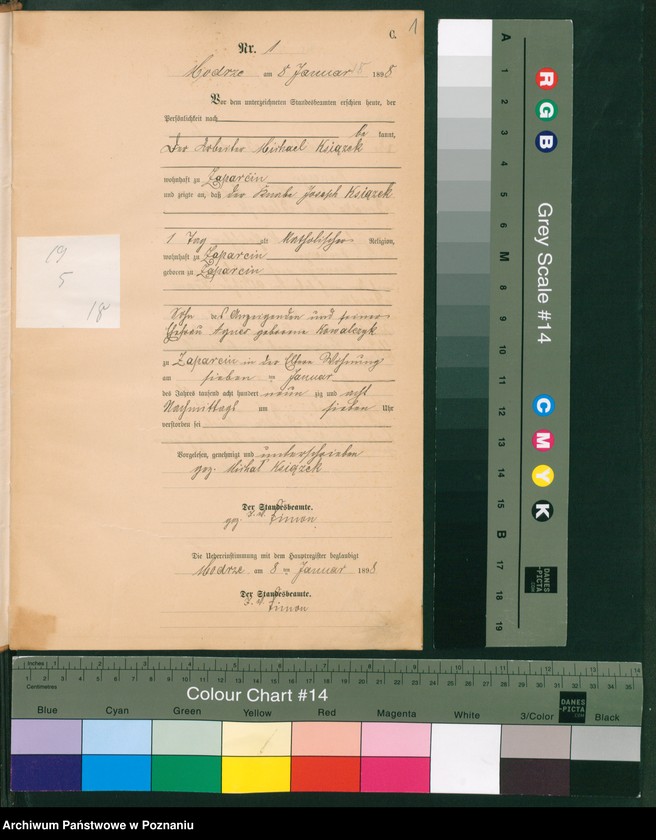 C. 1
Nr. 1
Modrze am 8 Januar 1898
Vor dem unterzeichneten Standesbeamten erschien heute, der
Persönlichkeit nach
be kannt,
Der Arbeiter Michael Książek
wohnhaft zu Zaparcin
und zeigte an, daß der Knabe Joseph Książek
1 Tag alt Katholischer Religion,
wohnhaft zu Zaparcin
geboren zu Zaparcin
Sohn des Anzeigenden und seiner
Ehefrau Agnes geborene Kowalczyk
zu Zaparcin in der Eltern Wohnung
am sieben ten Januar
des Jahres tausend acht hundert neun zig und acht
Nachmittags um sieben Uhr
verstorben sei
Vorgelesen, genehmigt und unterschrieben
gez. Michał Książek
Der Standesbeamte.
gez. Simon
Die Uebereinstimmung mit dem Hauptregister beglaubigt
Modrze am 8 ten Januar 1898
Der Standesbeamte.
Simon
19
5
18
A 1 2 3 4 5 6 M 8 9 10 11 12 13 14 15 B 17 18 19
R G B
Grey Scale #14
C M Y K
DANES
-PICTA
.COM
Inches 1 2 3 4 5 6 7 8 9 10 11 12 13 14
Centimetres 1 2 3 4 5 6 7 8 9 10 11 12 13 14 15 16 17 18 19 20 21 22 23 24 25 26 27 28 29 30 31 32 33 34 35
Colour Chart #14
DANES
-PICTA
.COM
Blue Cyan Green Yellow Red Magenta White 3/Color Black
Archiwum Państwowe w Poznaniu